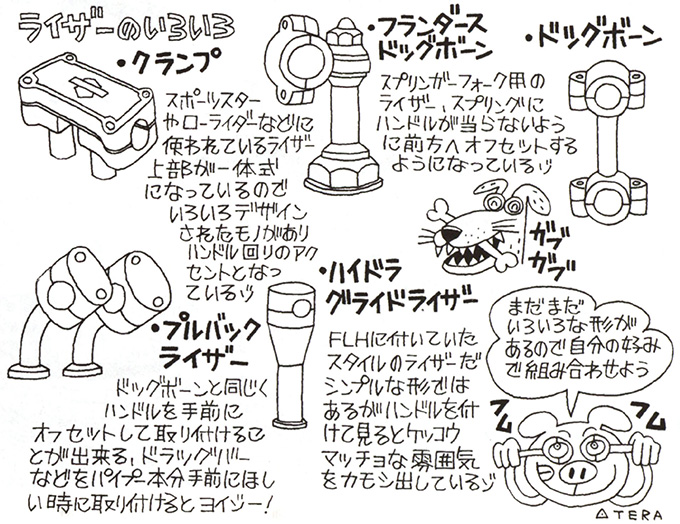 ライザーのいろいろ
・クランプ
スポーツスター
やローライダーなどに
使われているライザー
上部が一体式
になっているので
いろいろデザイン
されたモノがあり
ハンドル回りのアク
セントとなっ
ているジ
・フランダース
ドッグボーン
スプリンガーフォーク用の
ライザー、スプリングに
ハンドルが当らないよう
に前方へオフセットする
ようになっているジ
・ドッグボーン
ガブ
ガブ
・プルバック
ライザー
ドッグボーンと同じく
ハンドルを手前に
オフセットして取り付けるこ
とが出来る、ドラッグバー
などをパイプ一本分手前にほし
い時に取り付けるとヨイジー!
・ハイドラ
グライドライザー
FLHに付いていた
スタイルのライザーだ
シンプルな形では
あるがハンドルを付
けて見るとケッコウ
マッチョな雰囲気
をカモシ出しているジ
まだまだ
いろいろな形が
あるので自分の好み
で組み合わせよう
フム
フム
△TERA